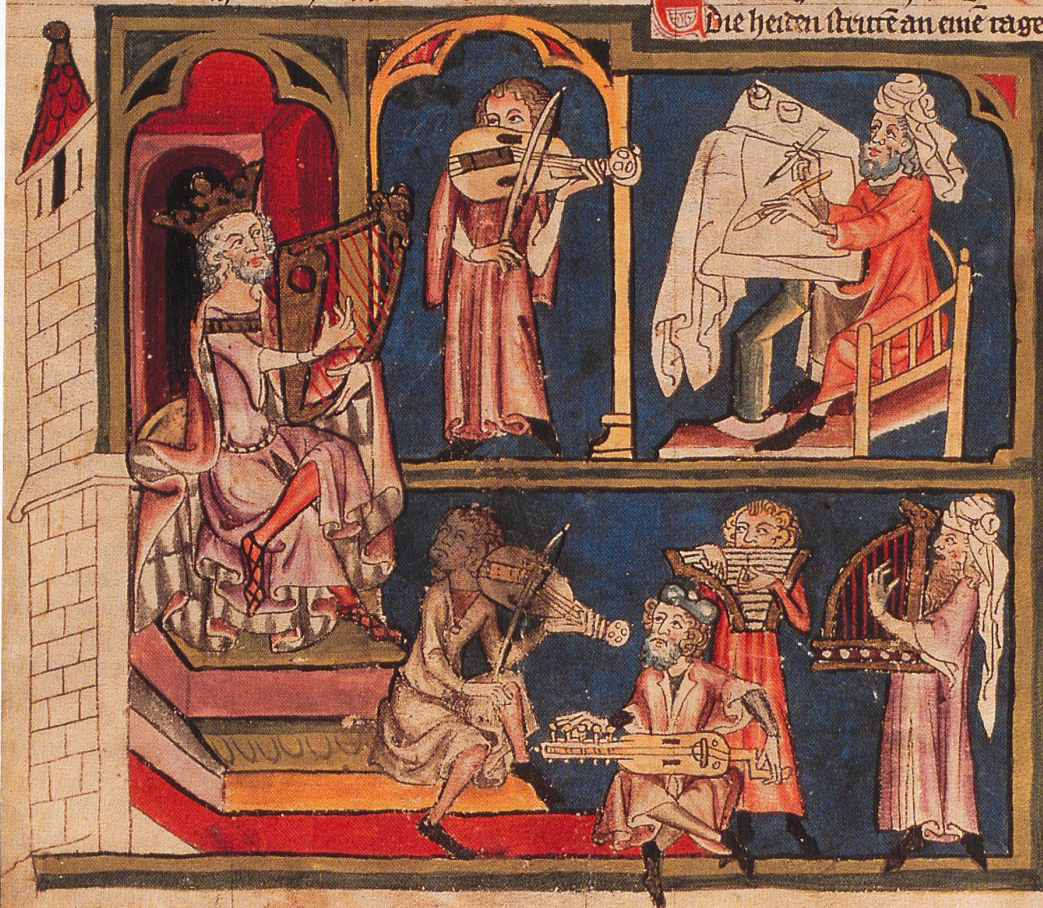 Die heiden strittē an einē tage